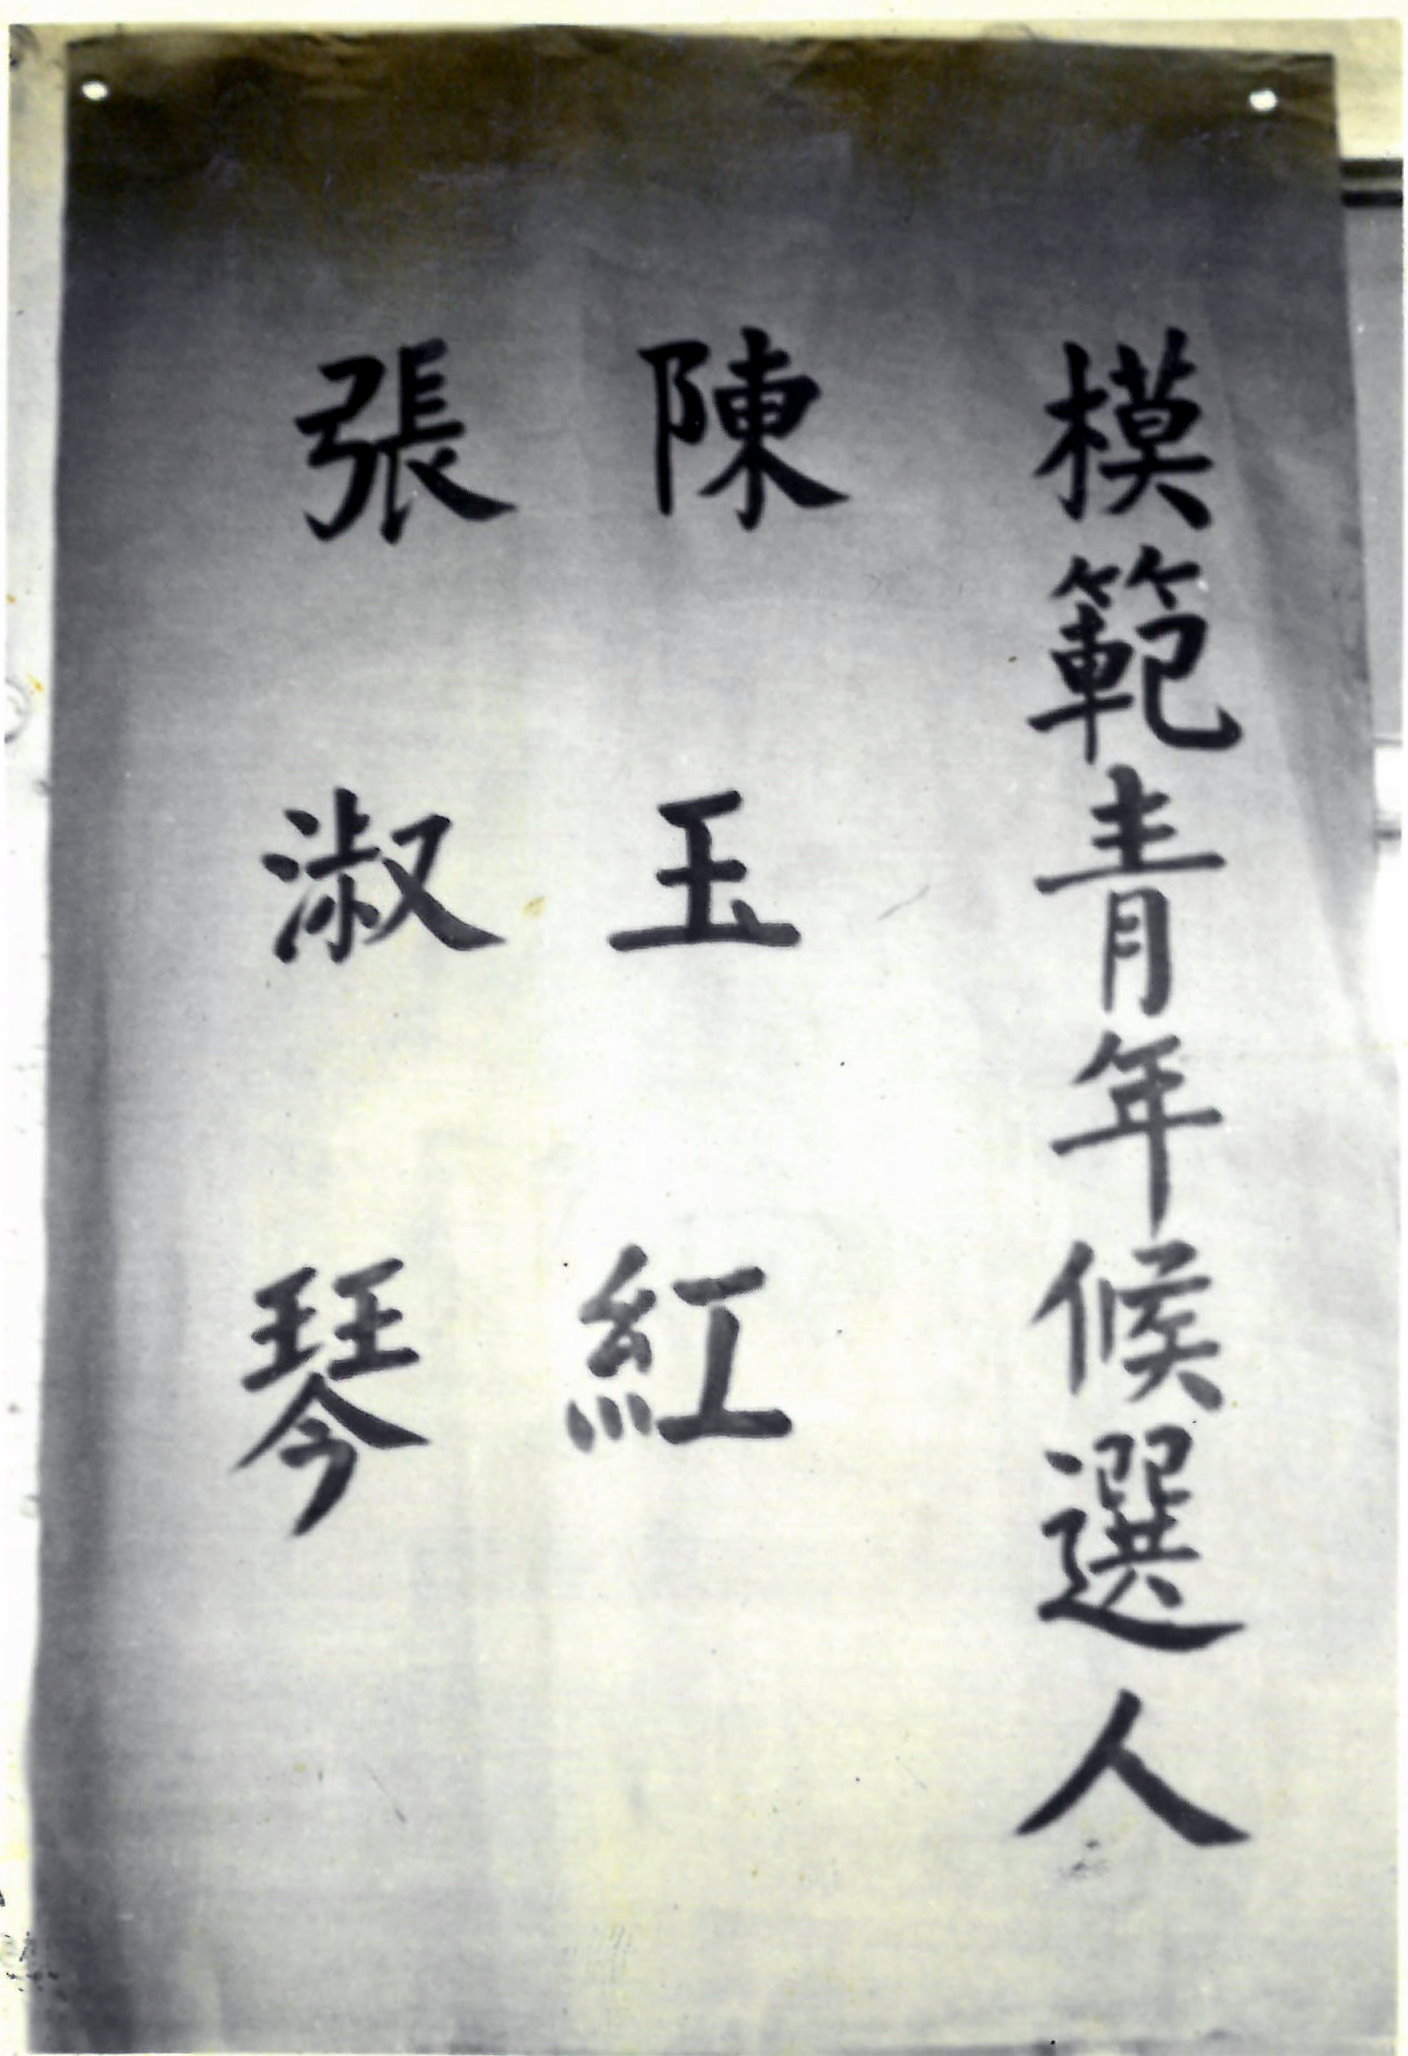 模範青年候選人
陳玉紅
張淑琴